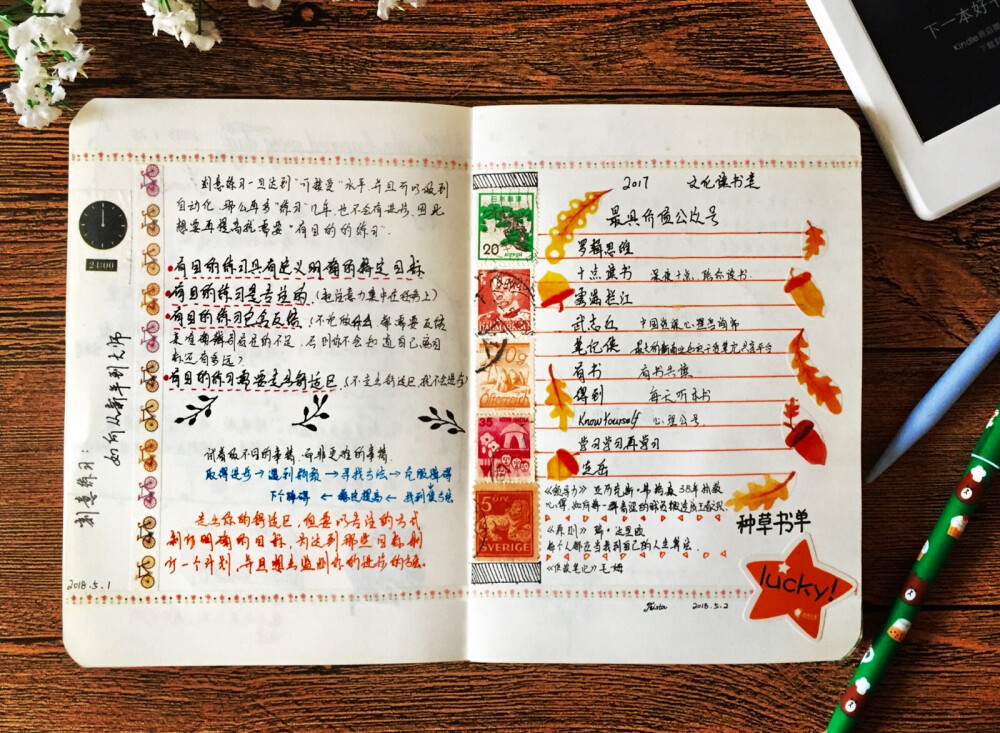 刻意练习：
如何从新手到大师
24:00
刻意练习一旦达到“可接受”水平，并且可以做到
自动化，那么再多“练习”几年，也不会有进步，因此
想要再提高就需要“有目的的练习”.
有目的练习具有定义明确的特定目标
有目的的练习是专注的（把注意力集中在任务上）
有目的的练习包含反馈（不论做什么，都需要反馈
来准确辨别在的不足，否则你不会知道自己离目
标还有多远）
有目的的练习需要走出舒适区（不走出舒适区，就不会进步）
试着做不同的事情，而非更难的事情.
取得进步→遇到瓶颈→寻找方法→克服障碍
下个障碍 ← 稳定提高 ← 找到方法
走出你的舒适区，但要以专注的方式
制订明确的目标，为达到那些目标制
订一个计划，并且想出监测你的进步的方法.
2018.5.1
日本郵便
20
NIPPON
DANMARK
Österreich
35
5 ÖRE
SVERIGE
2017 文化读书走
最具价值公众号
罗辑思维
十点读书 深夜十点，陪你读书.
雾满拦江
武志红 中国资深心理咨询师
笔记侠
有书 有书共读
得到 每天听本书
KnowYourself 心理公号.
学习学习再学习
《领导力》 亚历克斯·弗格森 38年执教
心得，
种草书单
《原则》 瑞·达里欧
每个人都应当找到自己的人生算法.
毛姆
lucky!
2018.5.2
下一本好书